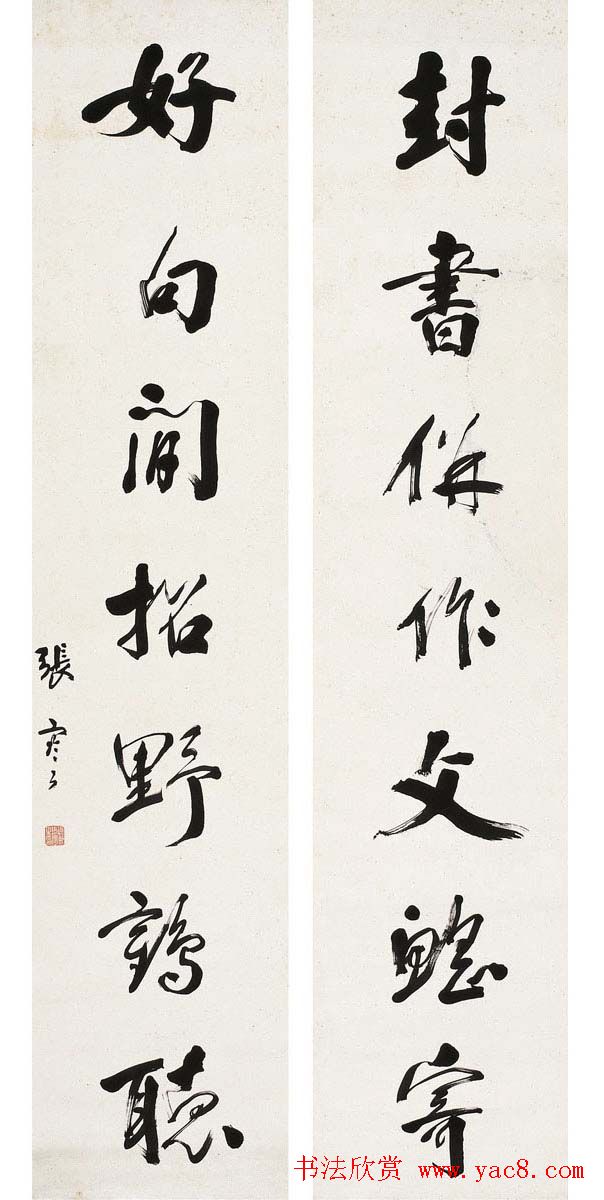 封書併作文鰩寄
好句閒招野鶴聽
張寒
书法欣赏 www.yac8.com